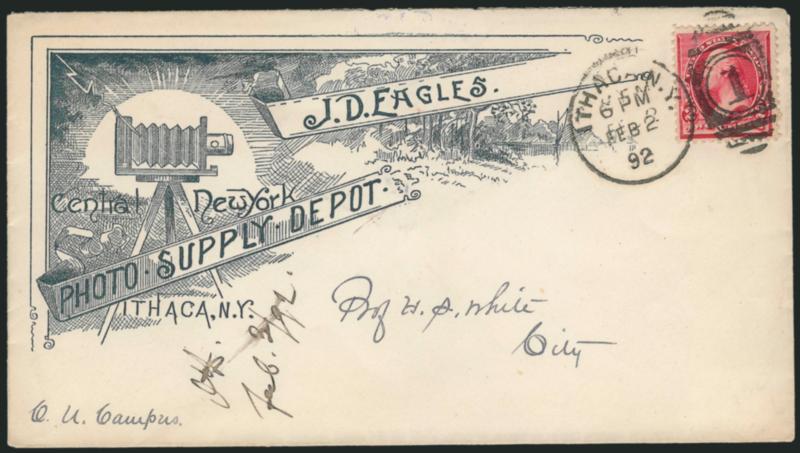 J. D. EAGLES.
Central New York
PHOTO · SUPPLY · DEPOT ·
ITHACA, N.Y.
ITHACA N.Y.
6 PM
FEB 2
92
1
Prof H. S. White
City
Feb. 2/92.
C. U. Campus.